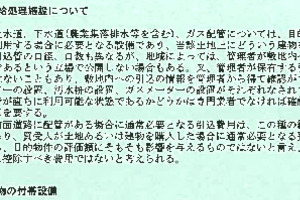 給処理施設について
上水道、下水道(農業集落排水等を含む)、ガス配管については、目的
利用する場合に必要となる設備であり、当該土地にどういう建物を
引込管の口径、口数も異なるが、地域によっては、管理者が敷地内
あるという立場で公開しない場合もある。又、管理者が保有する
ないこともあり、敷地内への引込の情報を管理者から得て確認が
水道のメーター、汚水桝、ガスメーターの設置がそれぞれなされて
が直ちに利用可能な状態であるかどうかは専門業者でなければ確認
を要する。
前面道路に配管がある場合に通常必要となる引込費用は、この種の
あり、買受人が土地あるいは建物を購入した場合に通常必要となる
、目的物件の評価額にそもそも影響を与えるものではないと言え
に控除すべき費用ではないと考えられる。
物の付帯設備